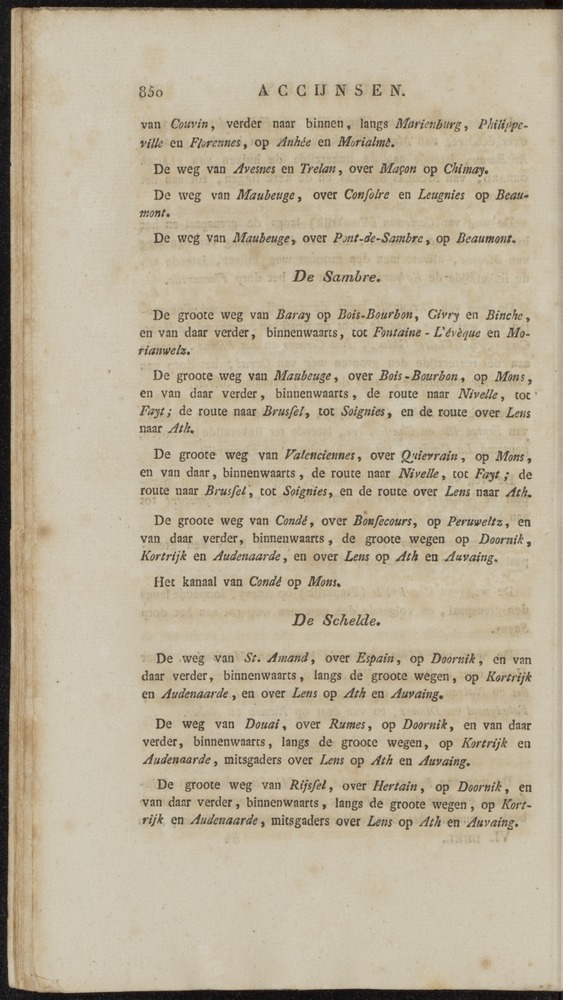 850 ACCIJNSEN.
van Couvin, verder naar binnen, langs Marienburg, Philippe-
ville en Florennes, op Anhée en Morialmé.
De weg van Avesnes en Trelan, over Maçon op Chimay.
De weg van Maubeuge, over Conſolre en Leugnies op Beau-
mont.
De weg van Maubeuge, over Pont-de-Sambre, op Beaumont.
De Sambre.
De groote weg van Baray op Bois-Bourbon, Givry en Binche,
en van daar verder, binnenwaarts, tot Fontaine-L'évèque en Mo-
rianwelz.
De groote weg van Maubeuge, over Bois-Bourbon, op Mons,
en van daar verder, binnenwaarts, de route naar Nivelle, tot
Fayt; de route naar Brusſel, tot Soignies, en de route over Lens
naar Ath.
De groote weg van Valenciennes, over Quievrain, op Mons,
en van daar, binnenwaarts, de route naar Nivelle, tot Fayt; de
route naar Brusſel, tot Soignies, en de route over Lens naar Ath.
De groote weg van Condé, over Bonſecours, op Peruweltz, en
van daar verder, binnenwaarts, de groote wegen op Doornik,
Kortrijk en Audenaarde, en over Lens op Ath en Auvaing.
Het kanaal van Condé op Mons.
De Schelde.
De weg van St. Amand, over Espain, op Doornik, en van
daar verder, binnenwaarts, langs de groote wegen, op Kortrijk
en Audenaarde, en over Lens op Ath en Auvaing.
De weg van Douai, over Rumes, op Doornik, en van daar
verder, binnenwaarts, langs de groote wegen, op Kortrijk en
Audenaarde, mitsgaders over Lens op Ath en Auvaing.
De groote weg van Rijsſel, over Hertain, op Doornik, en
van daar verder, binnenwaarts, langs de groote wegen, op Kort-
rijk en Audenaarde, mitsgaders over Lens op Ath en Auvaing.